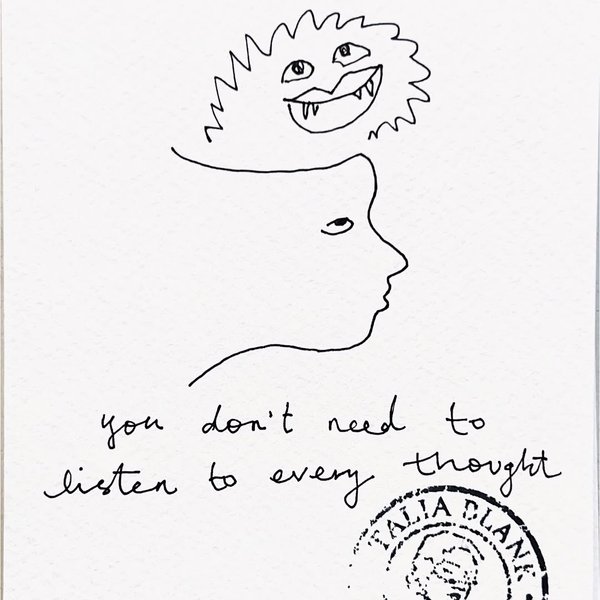 you don't need to
listen to every thought
TALIA BLANK